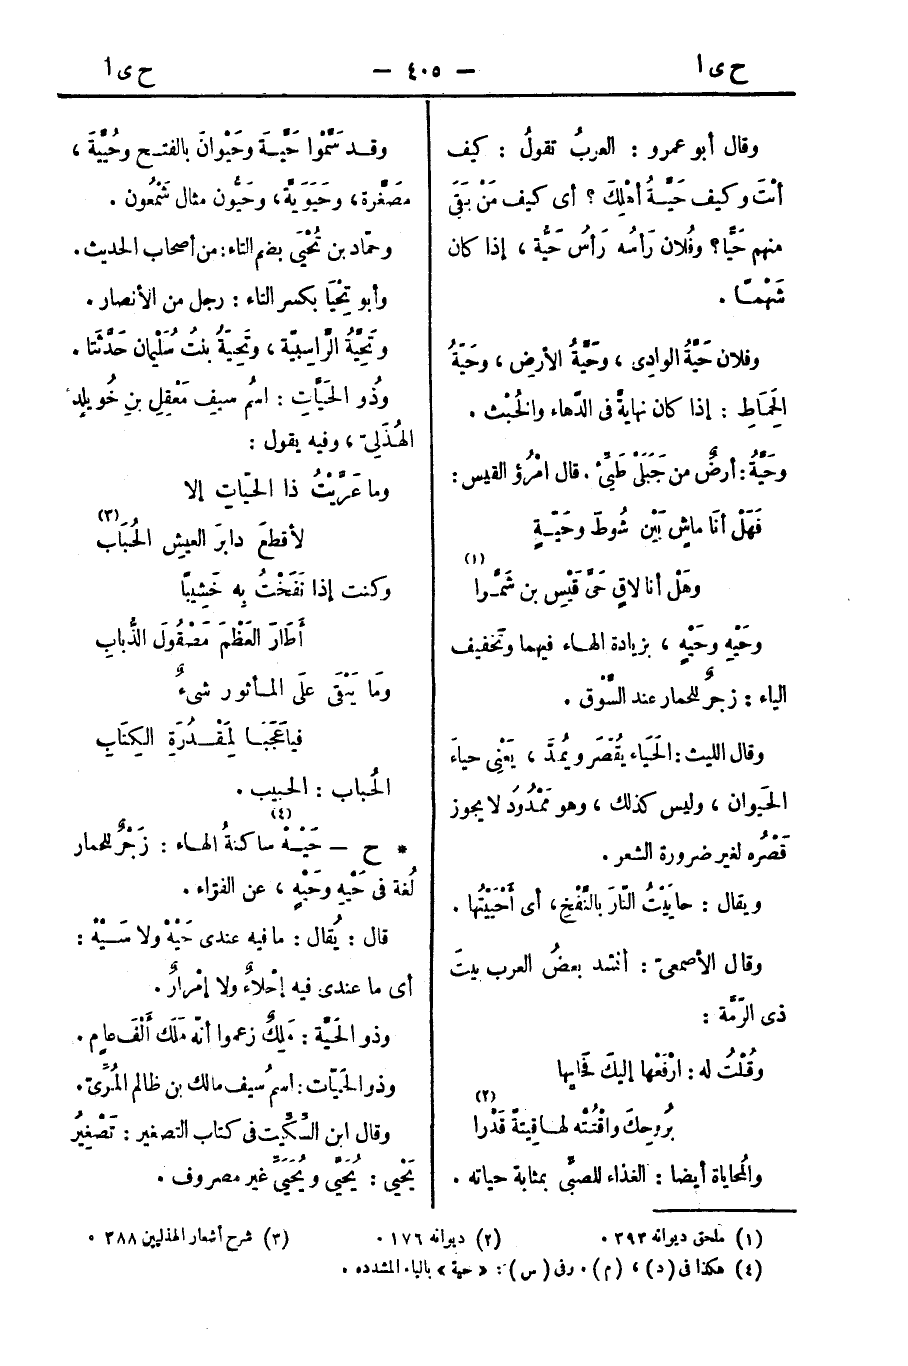 ح ى ا
— ٤٠٥ —
ح ى ا
وقال أبو عمرو : العربُ تقولُ : كيف
أنْتَ وكيف حَيَّةُ أهْلِكَ ؟ أى كيف مَنْ بَقَى
منهم حَيًّا ؟ وفُلان رَأسُه رَأسُ حَيَّة ، إذا كان
شَهْمًا .
وفلان حَيَّةُ الوادِى ، وحَيَّةُ الأرضِ ، وحَيَّةُ
الحَمَاطِ : إذا كان نهايةً فى الدَّهاء والخُبْث .
وحَيَّةُ : أرضٌ من جَبَلَىْ طَيِّئْ . قال امْرُؤ القيس :
فَهَلْ أنَا ماشٍ بَيْن شُوطَ وحَيَّةٍ
وهَلْ أنا لاقٍ حَىَّ قَيْسِ بن شَمَّرا (١)
وحَيْهِ وحَيْهٍ ، بزيادة الهاء فيهما وتخفيف
الياء : زجرٌ للحمار عند السَّوْق .
وقال الليث : الحَيَاء يُقْصَر ويُمدّ ، يَعْنِى حياءَ
الحَيوان ، وليس كذلك ، وهو مَمْدُودَ لا يجوز
قَصْرُه لغير ضرورة الشعر .
ويقال : حايَيْتُ النّارَ بالنَّفْخِ ، أى أحْيَيْتُها .
وقال الأصمعىّ : أنشد بعضُ العرب بيتَ
ذى الرّمّة :
وقُلْتُ له : ارْفَعْها إليكَ فَحايِها
بُروحِكَ واقْتَتْه لها قِيتةً قَدْرا (٢)
والمُحاياة أيضا : الغذاء للصبِّى بمثابة حياته .
وقد سَمَّوْا حَيَّة وحَيْوانَ بالفتح وحُيَيَّةَ ،
مصَغَّرة ، وحَيَوَيةَّ ، وحَيُّون مثال شَمْعُون .
وحمّاد بن تُحْيَى بضم التاء : من أصحاب الحديث .
وأبو تِحْيَا بكسر التاء : رجل من الأنصار .
وتَحِيَّةُ الرَّاسِبيّة ، وتَحِيّةُ بنتُ سُلَيْمان حَدَّثَتا .
وذُو الحَيَّاتِ : اسمُ سيف مَعْقِلِ بنِ خُوَيلِدٍ
الهُذَلِىّ ، وفيه يقول :
وما عَرَّيْتُ ذا الحَيّاتِ إلا
لأقطعَ دابرَ العيشِ الحُبَابِ (٣)
وكنت إذا نَفَخْتُ بِه خَشِيبًا
أطَارَ العَظْمَ مَصْقُولَ الذُّبابِ
ومَا يَبْقَى علَى المأثورِ شىءٌ
فياعَجَبَا لِمَقْدُرَةِ الكِتَابِ
الحُباب : الحبيب .
* ح — حَيْهْ ساكنةُ الهاء : زَجْرٌ للحمار (٤)
لُغة فى حَيْهِ وحَيْهٍ ، عن الفرّاء .
قال : يُقال : ما فيه عندى حَيْهْ ولا سَيْهْ :
أى ما عندى فيه إحْلاءٌ ولا إمْرارٌ .
وذو الحَيَّة : مَلِكٌ زعموا أنّه مَلَك ألْفَ عامٍ .
وذو الحَيّات : اسمُ سيف مالك بن ظالم المُرِّىّ .
وقال ابن السِّكِّيت فى كتاب التصغير : تَصْغِيرُ
يَحْيَى : يُحَيَّى ويُحَيَىَّ غير مصروف .
(١) ملحق ديوانه ٣٩٣ . (٢) ديوانه ١٧٦ . (٣) شرح أشعار الهذليين ٣٨٨ .
(٤) هكذا فى (د) ، (م) . وفى (س) : « حية » بالياء المشدده .